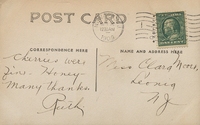 POST CARD
CORRESPONDENCE HERE
NAME AND ADDRESS HERE
Cherries were
fine. Honey
Many thanks
Ruth
Miss Clara
Leonia
NJ